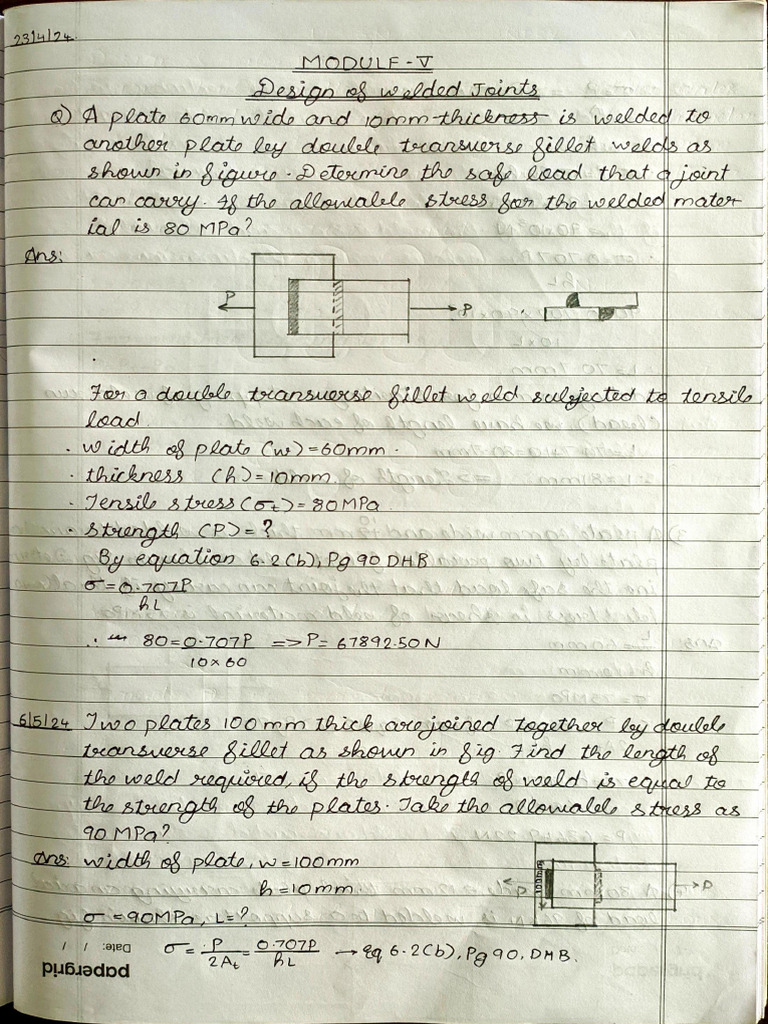 23/4/24.
MODULE-V
Design of Welded Joints
Q) A plate 60mm wide and 10mm thickness is welded to
another plate by double transverse fillet welds as
shown in figure. Determine the safe load that a joint
can carry. If the allowable stress for the welded mater
ial is 80 MPa?
Ans:
P P
For a double transverse fillet weld subjected to tensile
load.
· width of plate (w)=60mm.
· thickness (h)=10mm.
· Tensile stress (σt)=80MPa
· strength (P)=?
By equation 6.2(b), Pg 90 DHB
σ=0.707P
hL
∴ 80=0.707P => P= 67892.50N
10×60
6/5/24 Two plates 100mm thick are joined together by double
transverse fillet as shown in fig. Find the length of
the weld required, if the strength of weld is equal to
the strength of the plates. Take the allowable stress as
90 MPa?
Ans: width of plate, w=100mm
h=10mm.
P 100mm P
σ=90MPa, L=?
σ= P = 0.707P → Eq 6.2(b), Pg 90, DHB.
2At hL
Date: / /
papergrid